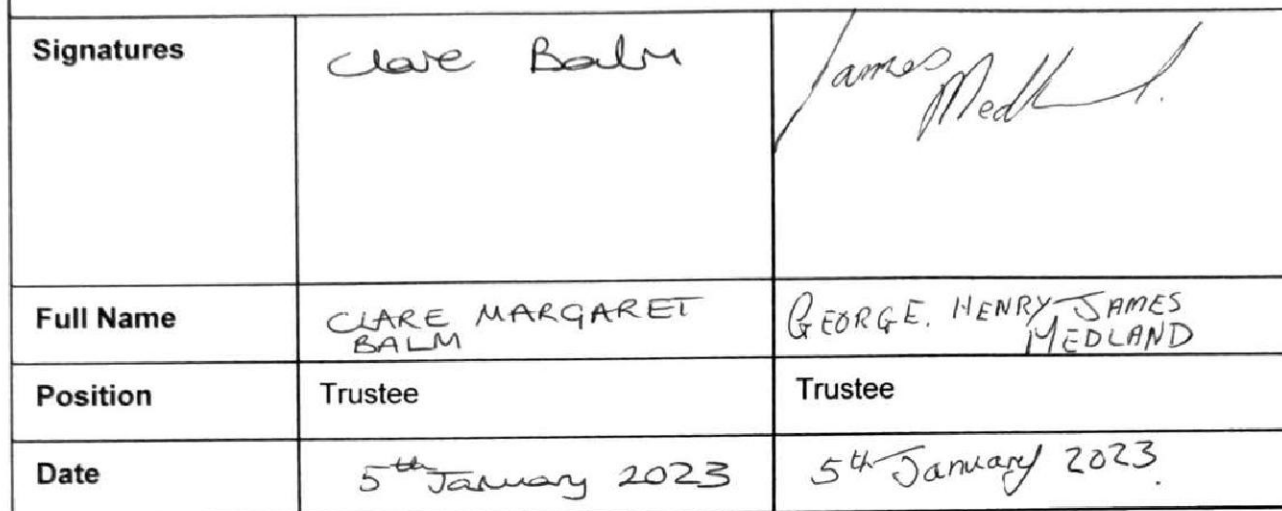 Signatures
Clare Balm
James
Medland.
Full Name
CLARE MARGARET
BALM
GEORGE. HENRY JAMES
MEDLAND
Position
Trustee
Trustee
Date
5th January 2023
5th January 2023.